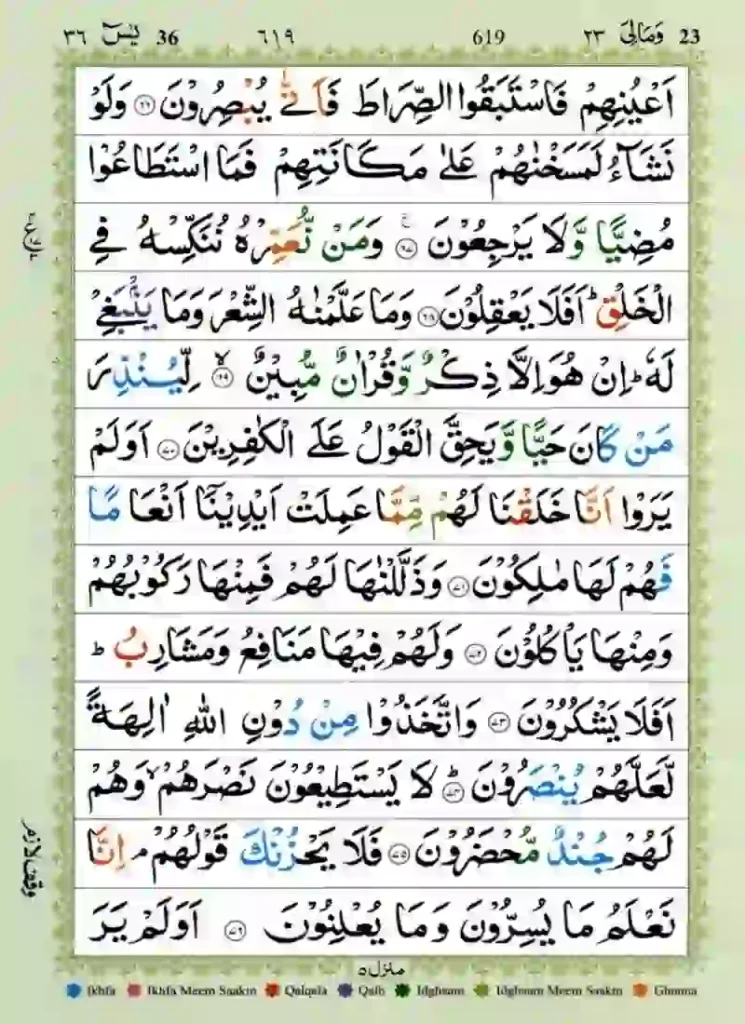 23 وَمَالِیَ ٢٣ 619 ٦١٩ 36 یٰسٓ ٣٦
اَعْيُنِهِمْ فَاسْتَبَقُوا الصِّرَاطَ فَاَنّٰى يُبْصِرُوْنَ ﴿٦٦﴾ وَلَوْ
نَشَآءُ لَمَسَخْنٰهُمْ عَلٰى مَكَانَتِهِمْ فَمَا اسْتَطَاعُوْا
مُضِيًّا وَّلَا يَرْجِعُوْنَ ﴿٦٧﴾ وَمَنْ نُّعَمِّرْهُ نُنَكِّسْهُ فِى
الْخَلْقِ ؕ اَفَلَا يَعْقِلُوْنَ ﴿٦٨﴾ وَمَا عَلَّمْنٰهُ الشِّعْرَ وَمَا يَنْۢبَغِىْ
لَهٗ ؕ اِنْ هُوَ اِلَّا ذِكْرٌ وَّقُرْاٰنٌ مُّبِيْنٌ ۙ ﴿٦٩﴾ لِّيُنْذِرَ
مَنْ كَانَ حَيًّا وَّيَحِقَّ الْقَوْلُ عَلَى الْكٰفِرِيْنَ ﴿٧٠﴾ اَوَلَمْ
يَرَوْا اَنَّا خَلَقْنَا لَهُمْ مِّمَّا عَمِلَتْ اَيْدِيْنَاۤ اَنْعَامًا
فَهُمْ لَهَا مٰلِكُوْنَ ﴿٧١﴾ وَذَلَّلْنٰهَا لَهُمْ فَمِنْهَا رَكُوْبُهُمْ
وَمِنْهَا يَاْكُلُوْنَ ﴿٧٢﴾ وَلَهُمْ فِيْهَا مَنَافِعُ وَمَشَارِبُ ؕ
اَفَلَا يَشْكُرُوْنَ ﴿٧٣﴾ وَاتَّخَذُوْا مِنْ دُوْنِ اللّٰهِ اٰلِهَةً
لَّعَلَّهُمْ يُنْصَرُوْنَ ؕ ﴿٧٤﴾ لَا يَسْتَطِيْعُوْنَ نَصْرَهُمْ ۙ وَهُمْ
لَهُمْ جُنْدٌ مُّحْضَرُوْنَ ﴿٧٥﴾ فَلَا يَحْزُنْكَ قَوْلُهُمْ ۘ اِنَّا
نَعْلَمُ مَا يُسِرُّوْنَ وَمَا يُعْلِنُوْنَ ﴿٧٦﴾ اَوَلَمْ يَرَ
وقف لازم
منزل ٥
Ikhfa Ikhfa Meem Saakin Qalqala Qalb Idghaam Idghaam Meem Saakin Ghunna